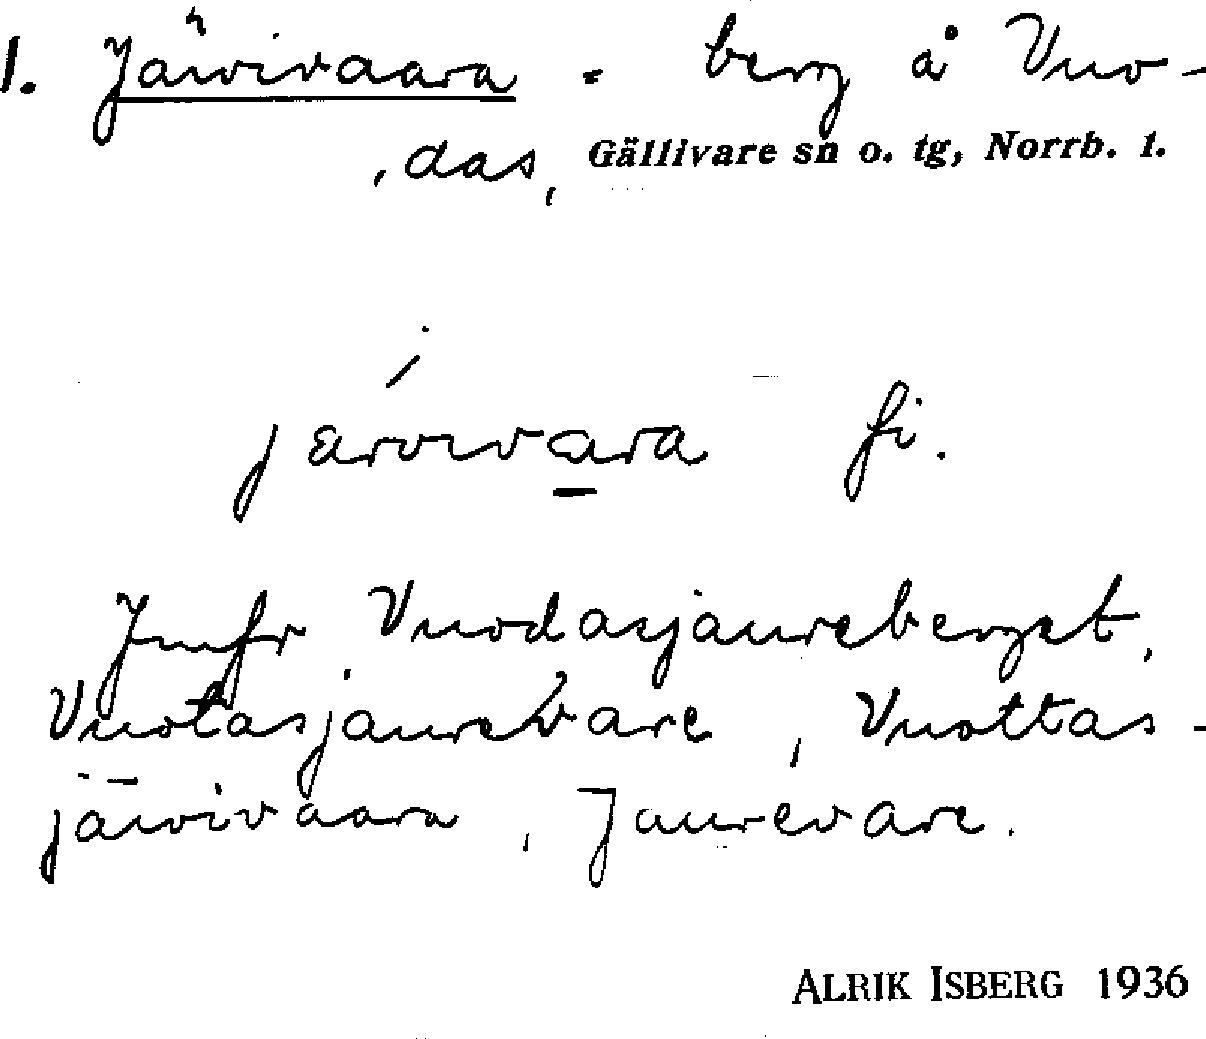 1. Järvivaara - berg å Vuo-
das, Gällivare sn o. tg, Norrb. l.
järvivara fi.
Jmfr Vuodasjaureberget,
Vuotasjaurevare, Vuottas-
järvivaara, Jaurevare.
ALRIK ISBERG 1936